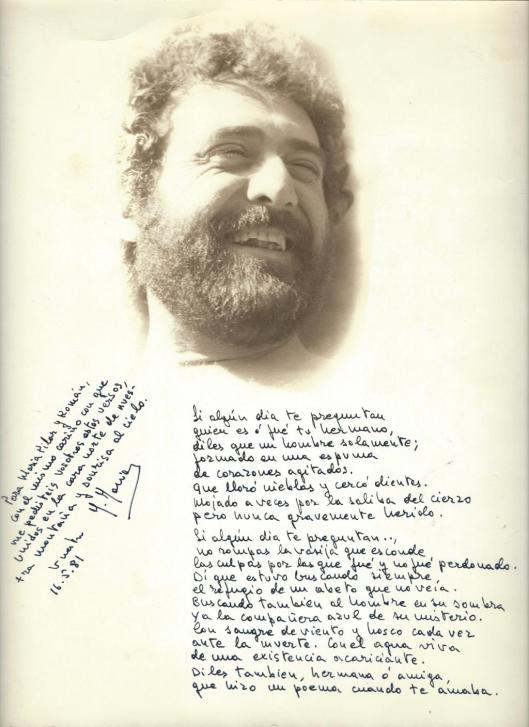 Si algún dia te preguntan
quien es ó fué tu hermano,
diles que un hombre solamente;
formado en una espuma
de corazones agitados.
que lloró nieblas y cercó dientes.
Mojado a veces por la saliba del cierzo
pero nunca gravemente herido.
Si algún dia te preguntan..,
no rompas la vasija que esconde
las culpas por las que fué y no fué perdonado.
Di que estuvo buscando siempre,
el refugio de un abeto que no veía.
Buscando también al hombre en su sombra
y a la compañera azul de su misterio.
Con sangre de viento y hosco cada vez
ante la muerte. Con el agua viva
de una existencia acariciante.
Diles tambien, hermana ó amiga,
que hizo un poema cuando te amaba.
Para Maria Pilar y Román,
con el mismo cariño con que
me pedisteis vosotros estos versos,
unidos en la cara norte de nues-
tra montaña y sonrisa al cielo.
16.5.81